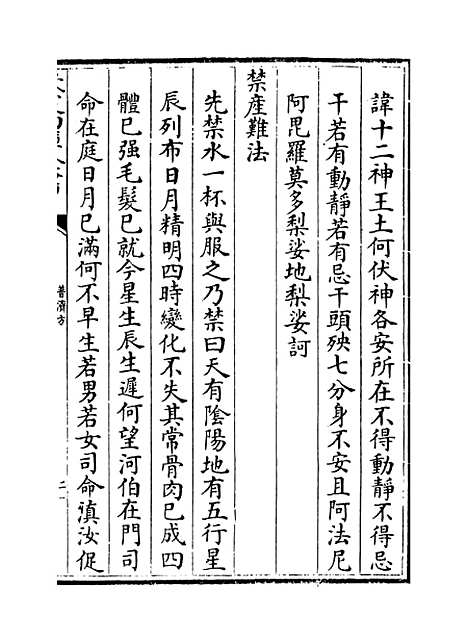 諱十二神王土何伏神各安所在不得動靜不得忌
干若有動靜若有忌干頭殃七分身不安且阿法尼
阿毘羅莫多梨娑地梨娑訶
禁産難法
先禁水一杯與服之乃禁曰天有陰陽地有五行星
辰列布日月精明四時變化不失其常骨肉已成四
體已强毛髮已就今星生辰生遲何望河伯在門司
命在庭日月已滿何不早生若男若女司命滇汝促
普濟方